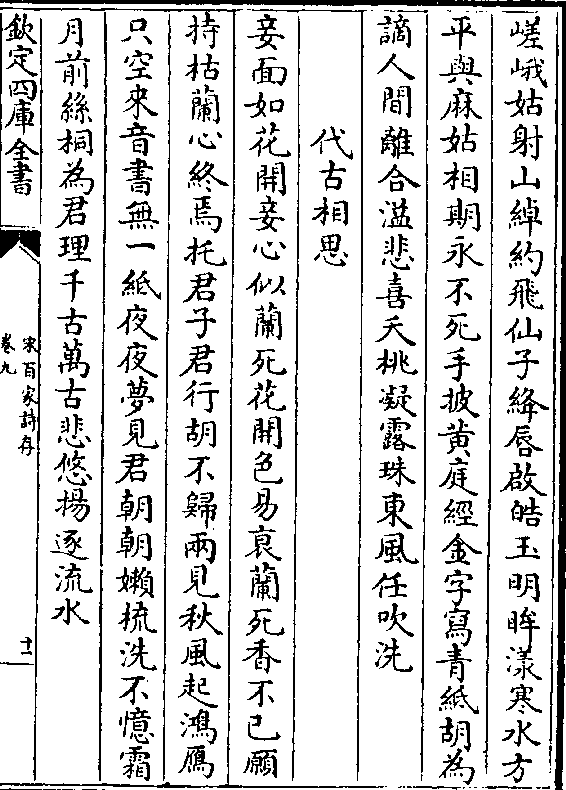 嵯峨姑射山綽約飛仙子絳唇啟皓玉明眸漾寒水方
平與麻姑相期永不死手披黄庭經金字寫青紙胡為
謫人間離合溢悲喜夭桃凝露珠東風任吹洗
代古相思
妾面如花開妾心似蘭死花開色易衰蘭死香不已願
持枯蘭心終焉托君子君行胡不歸兩見秋風起鴻鴈
只空來音書無一紙夜夜夢見君朝朝嬾梳洗不憶霜
月前絲桐為君理千古萬古悲悠揚逐流水
欽定四庫全書
宋百家詩存
卷九
十一